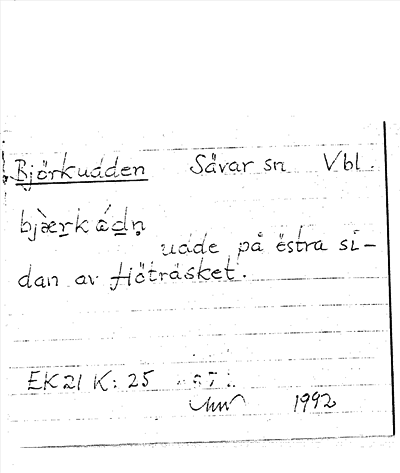 Björkudden Sävar sn Vbl.
bjæ̀rk ádn̥
udde på östra si-
dan av Höträsket.
EK 21 K: 25
1992